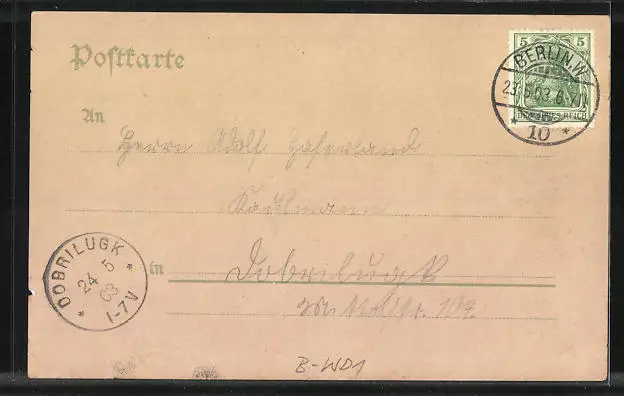 Postkarte
5 5
DEUTSCHES REICH
BERLIN.W.
23.5.03. 6-7N.
* 10 *
An
Herrn Adolf Haferland
Kaufmann
in Dobrilugk
107.
DOBRILUGK
24 5
03
* 1-7V *
B-WD1